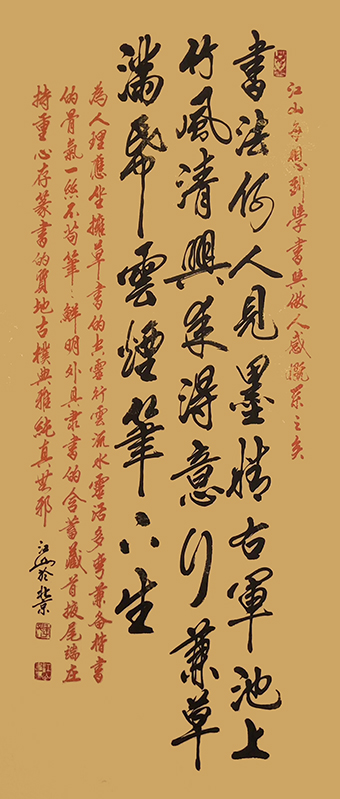 江山思到學書與做人感慨系之矣
書法何人見墨精右軍池上
竹風清興來得意行兼草
滿帋雲煙筆下生
為人理應坐擁草書的行雲流水靈活多變兼备楷書
的骨氣一丝不苟筆鮮明外具隶書的含蓄藏首掖尾端庄
持重心存篆書的質地古樸典雅純真無邪
江山於北京